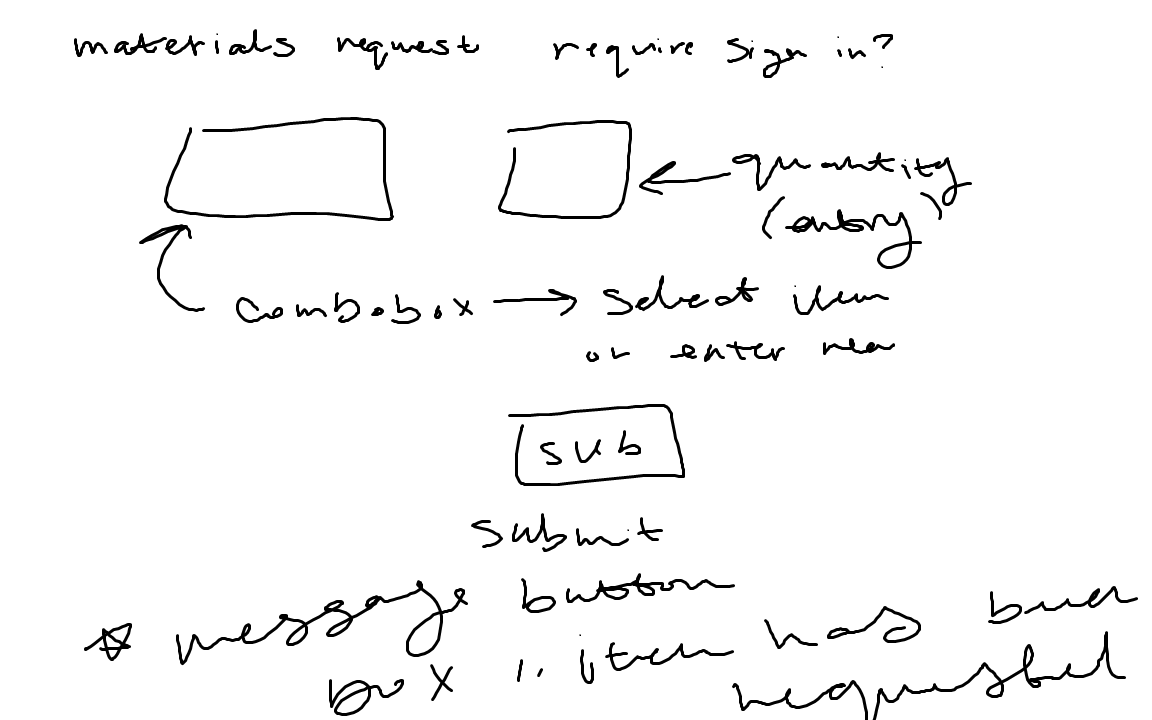 materials request require sign in?
quantity
(entry)
combobox → select item
or enter new
sub
submit
button
☆ message box : item has been requested